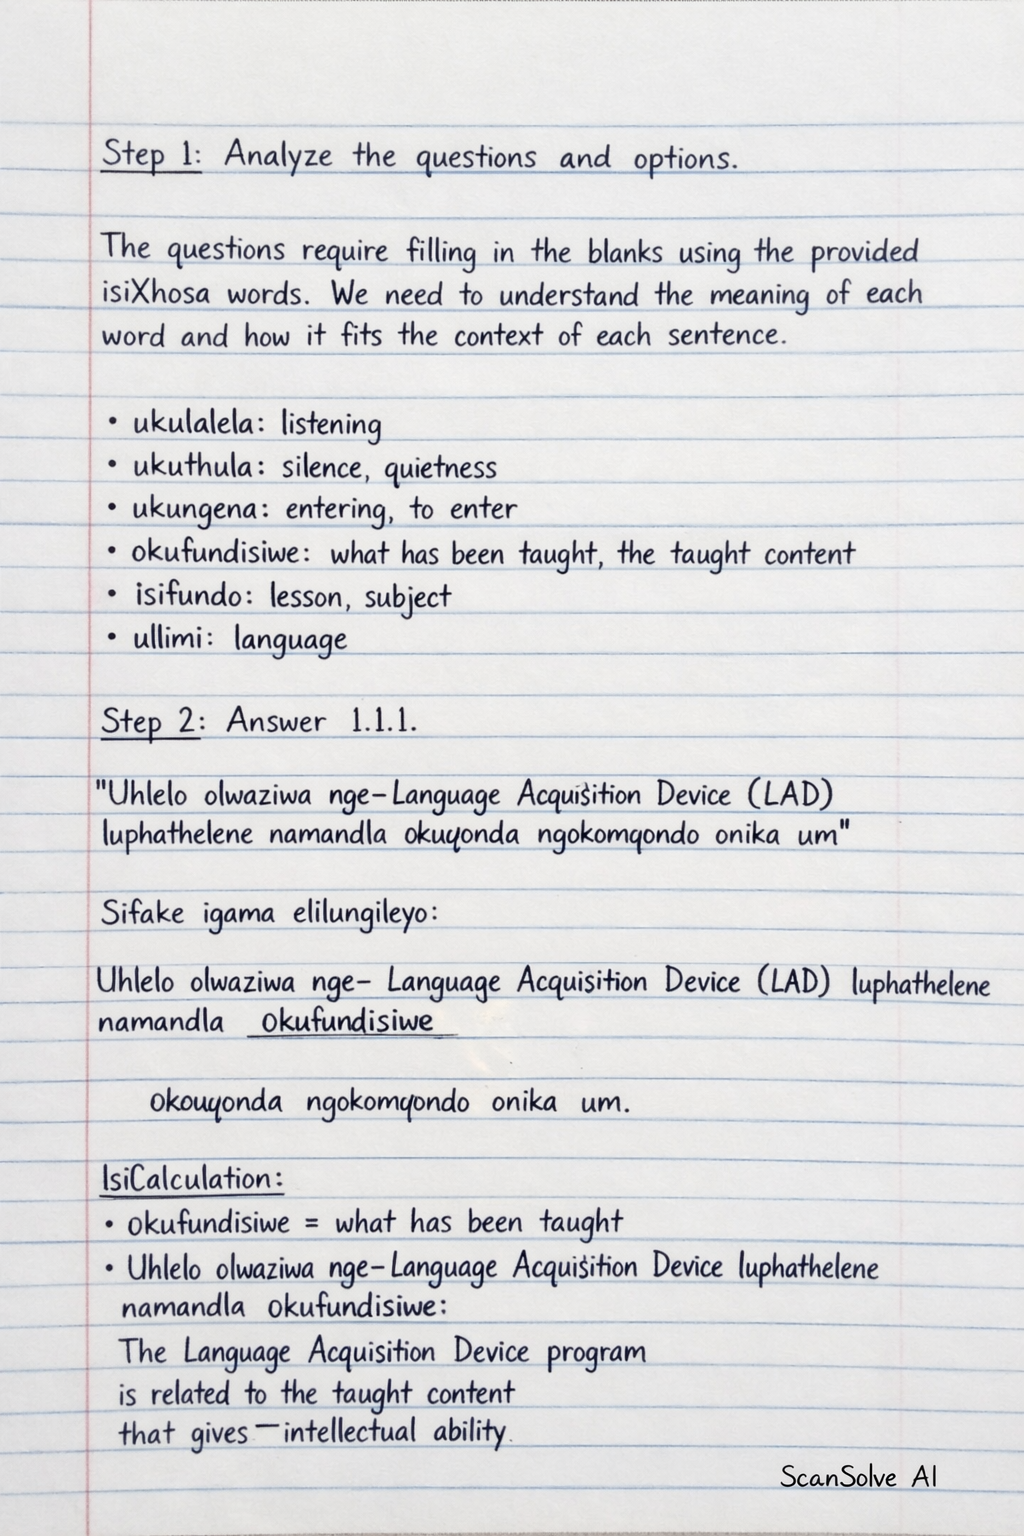 Step 1: Analyze the questions and options.
The questions require filling in the blanks using the provided
isiXhosa words. We need to understand the meaning of each
word and how it fits the context of each sentence.
• ukulalela: listening
• ukuthula: silence, quietness
• ukungena: entering, to enter
• okufundisiwe: what has been taught, the taught content
• isifundo: lesson, subject
• ullimi: language
Step 2: Answer 1.1.1.
"Uhlelo olwaziwa nge-Language Acquisition Device (LAD)
luphathelene namandla okuqonda ngokomqondo onika um"
Sifake igama elilungileyo:
Uhlelo olwaziwa nge- Language Acquisition Device (LAD) luphathelene
namandla okufundisiwe
okouqonda ngokomqondo onika um.
IsiCalculation:
• okufundisiwe = what has been taught
• Uhlelo olwaziwa nge-Language Acquisition Device luphathelene
namandla okufundisiwe:
The Language Acquisition Device program
is related to the taught content
that gives — intellectual ability.
ScanSolve AI